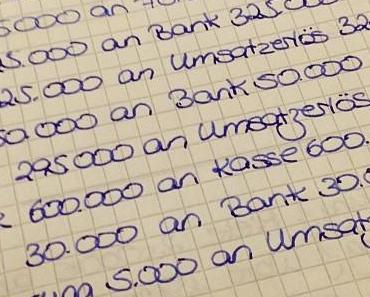 5000 an
5.000 an Bank 325.00
25.000 an Umsatzerlös 32
50.000 an Bank 50.000
295000 an Umsatzerlös
600.000 an Kasse 600.
30.000 an Bank 30.0
5.000 an Umsat